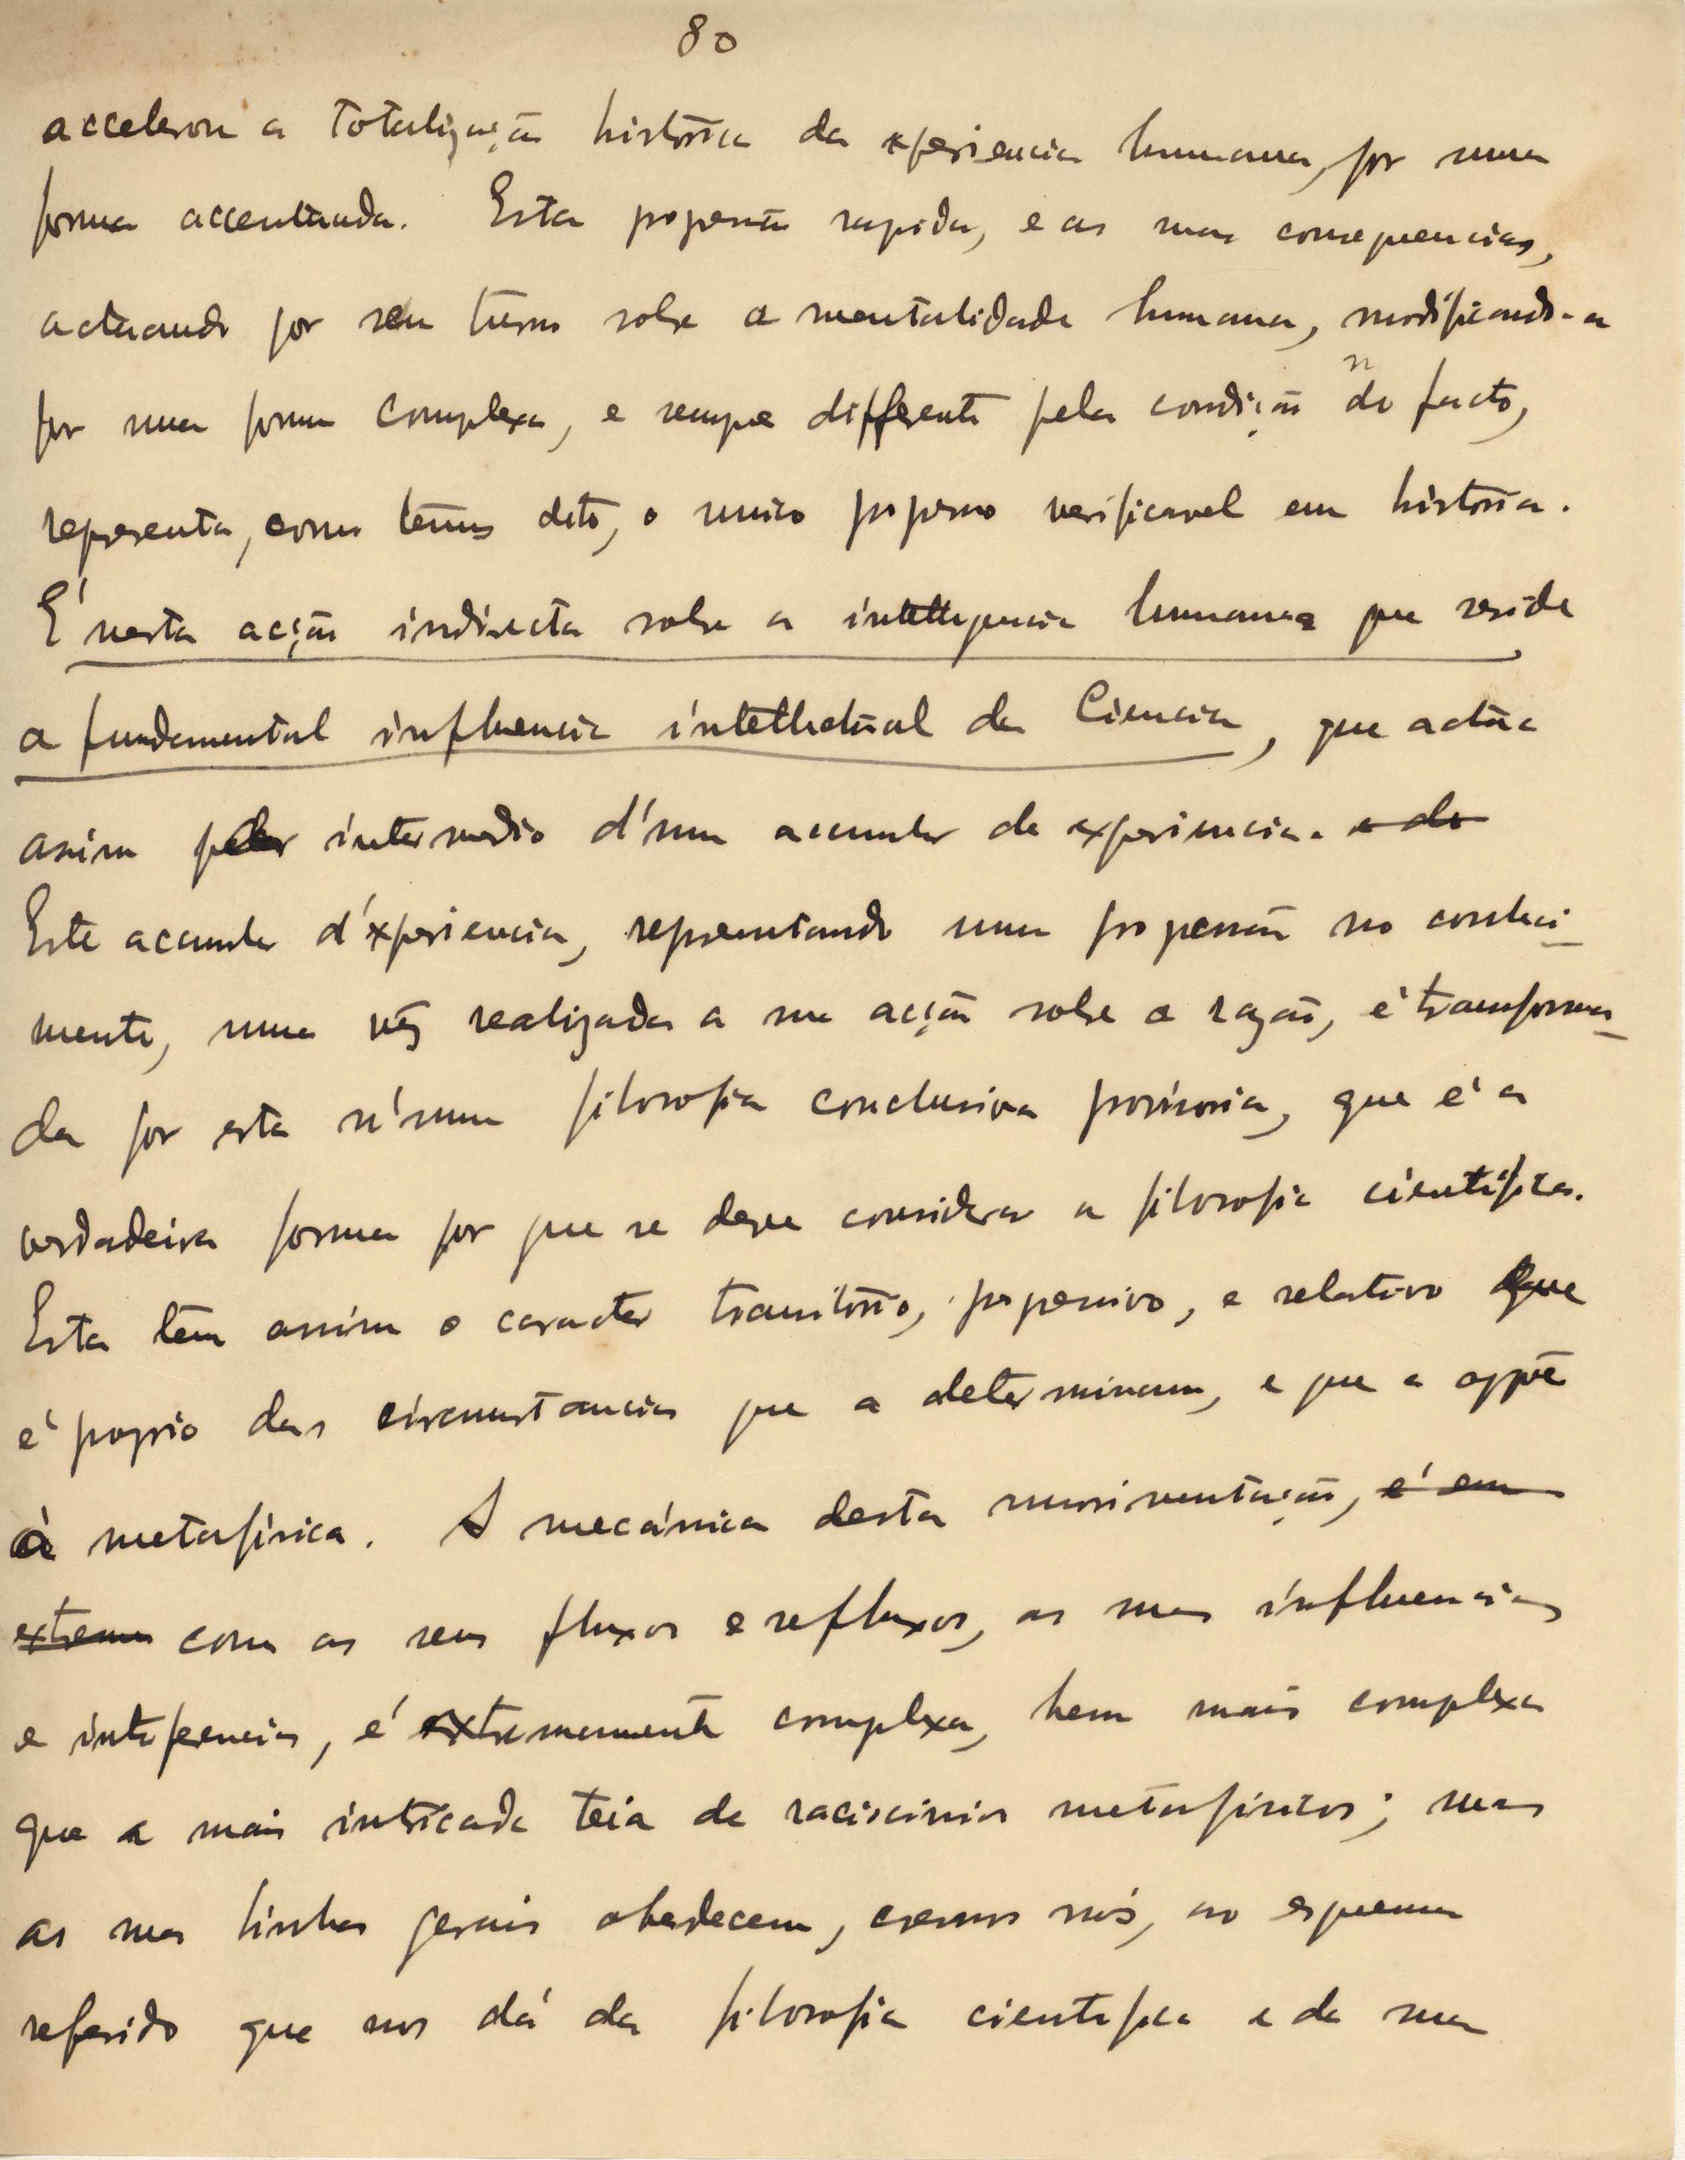 80
accelerou a totalização histórica da experiencia humana, por uma
forma accentuada. Esta progressão rapida, e as suas consequencias,
actuando por seu turno sobre a mentalidade humana, modificando-a
por uma forma complexa, e sempre differente pela condição n do facto,
representa, como temos dito, o unico progresso verificavel em história.
É nesta acção indirecta sobre a intelligencia humana que reside
a fundamental influencia intellectual da Ciencia, que actúa
assim por intermedio d'um acumular de experiencia. e do
Este acumular d'experiencia, representando uma progressão no conheci-
mento, uma vêz realizada a sua acção sobre a razão, é transforma-
da por esta n'uma filosofia conclusiva provisoria, que é a
verdadeira forma por que se deve considerar a filosofia cientifica.
Esta têm assim o caracter transitório, progressivo, e relativo que
é proprio das circumstancias que a determinam, e que a oppõe
à metafísica. A mecánica desta movimentação, é em
extrema com os seus fluxos e refluxos, as suas influencias
e interferencias, é extremamente complexa, bem mais complexa
que a mais intricada teia de raciocinios metafísicos; mas
as suas linhas gerais obedecem, cremos nós, ao esquema
referido que nos dá da filosofia cientifica e da sua